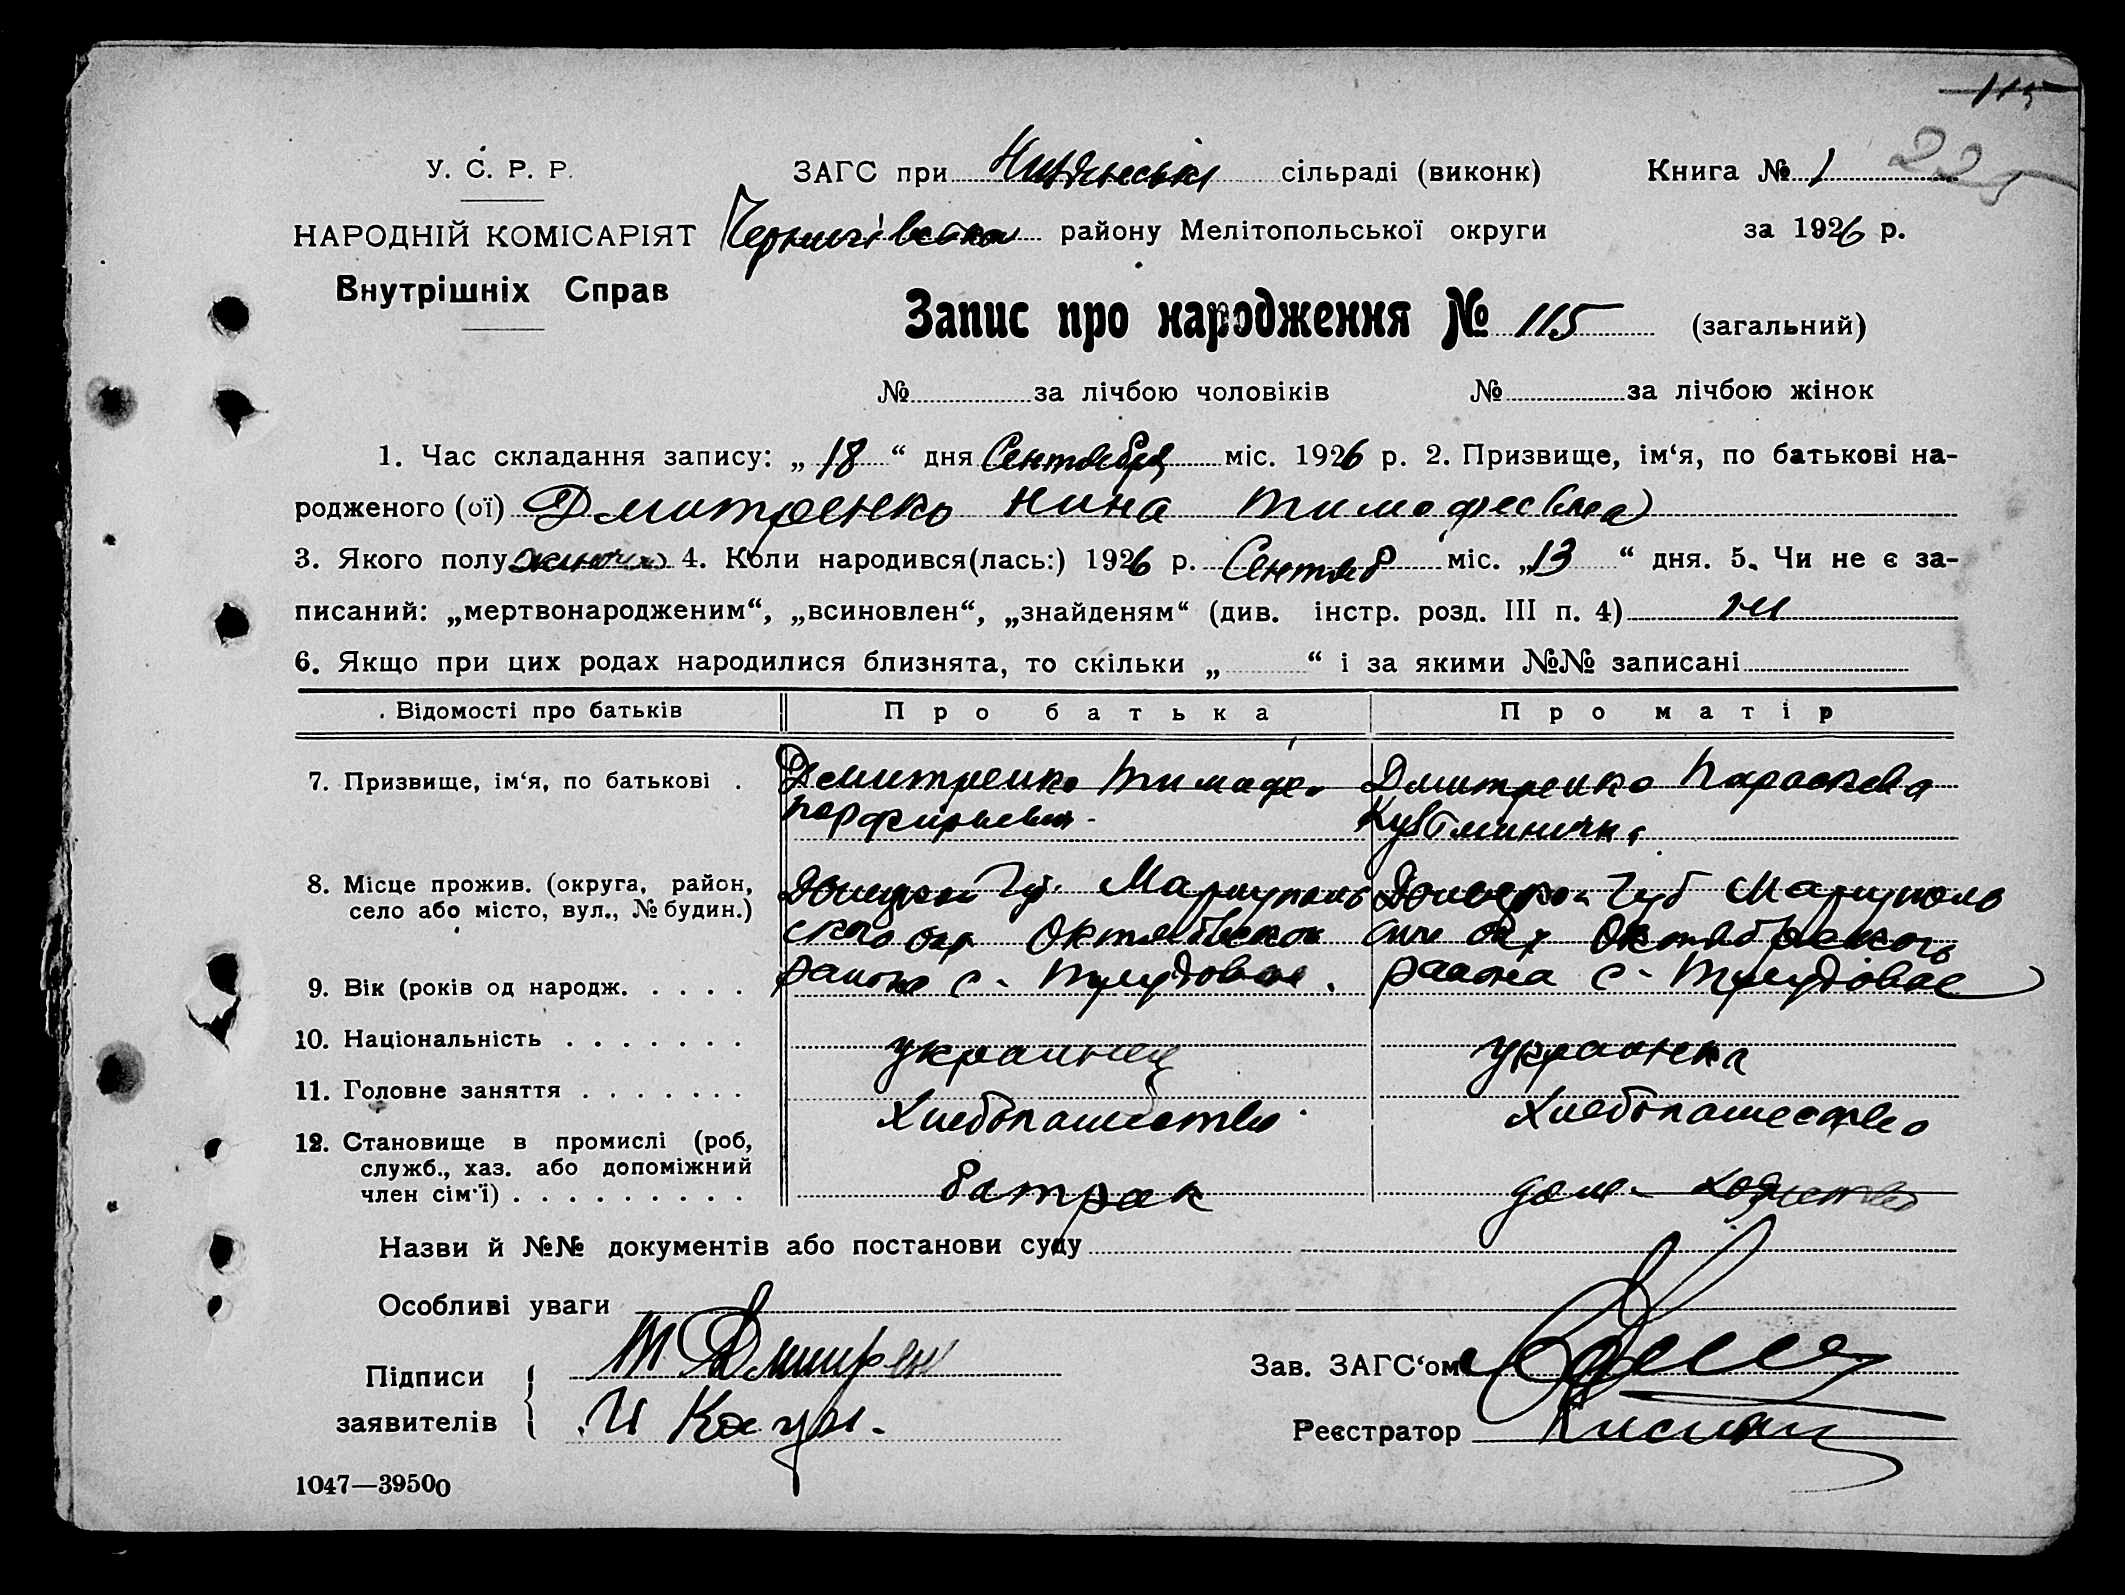 115
225
У. С. Р. Р. ЗАГС при сільраді (виконк) Книга № 1
НАРОДНІЙ КОМІСАРІЯТ району Мелітопольської округи за 1926 р.
Внутрішніх Справ
Запис про народження № 115 (загальний)
№ за лічбою чоловіків № за лічбою жінок
1. Час складання запису: „ 18 “ дня Сентября міс. 1926 р. 2. Призвище, ім‘я, по батькові на-
родженого (ої) Дмитренко Нина Тимофеевна
3. Якого полу 4. Коли народився(лась:) 1926 р. Сентяб міс. „ 13 “ дня. 5. Чи не є за-
писаний: „мертвонародженим“, „всиновлен“, „знайденям“ (див. інстр. розд. III п. 4) ні
6. Якщо при цих родах народилися близнята, то скільки „ “ і за якими №№ записані
Відомості про батьків Про батька Про матір
7. Призвище, ім‘я, по батькові . Дмитренко Тимофе Дмитренко Параскева
Кузьминична
8. Місце прожив. (округа, район, Донецкой Губ. Мариуполь Донецкой Губ Мариуполь
село або місто, вул., № будин.) ского окр Октябрьского окр Октябрьского
9. Вік (років од народж. . . . . района с- Трудовое . района с- Трудовое
10. Національність . . . . . . . украинец украинка
11. Головне заняття . . . . . . . Хлебопашество Хлебопашество
12. Становище в промислі (роб,
служб., хаз. або допоміжний
член сім‘ї) . . . . . . . . . батрак дом-
Назви й №№ документів або постанови суду
Особливі уваги
Підписи Т Дмитрен Зав. ЗАГС‘ом
заявителів И Реєстратор
1047—39500